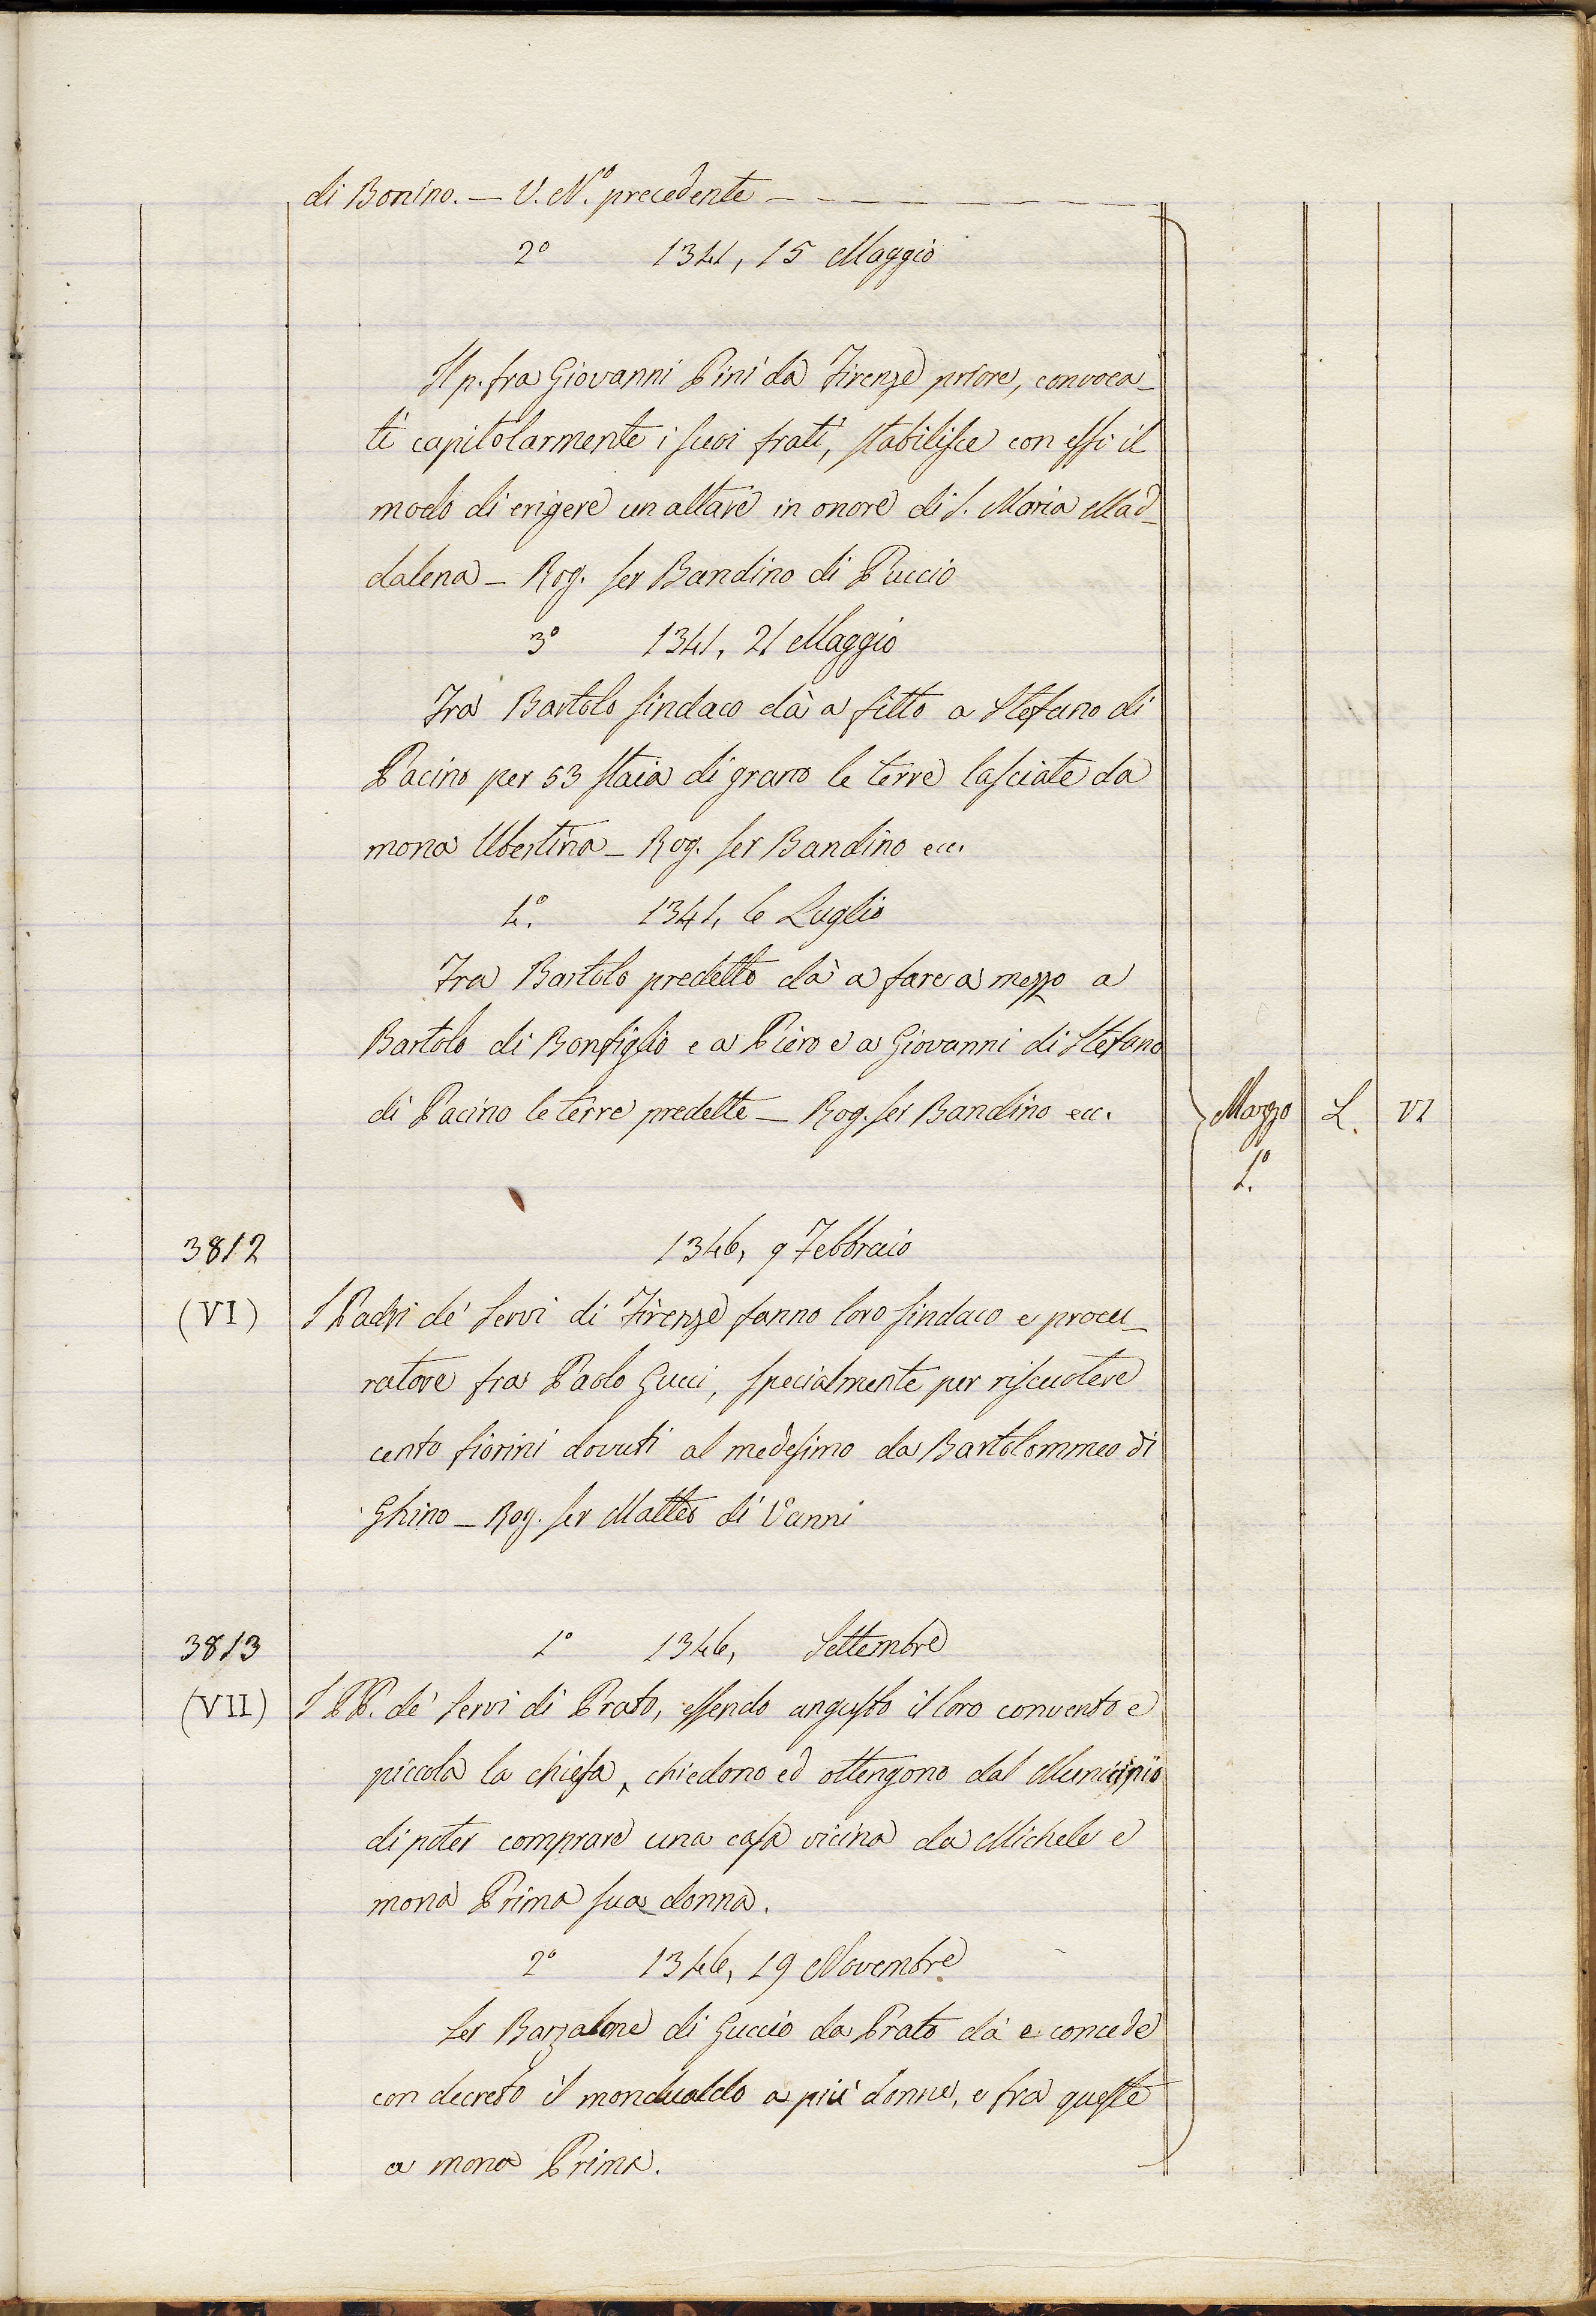 di Bonino. — V. N.º precedente — — — — — — — —
2º 1341, 15 Maggio
Il p. fra Giovanni Pini da Firenze priore, convoca_
ti capitolarmente i suoi frati, stabilisce con essi il
modo di erigere un altare in onore di S. Maria Mad_
dalena — Rog. ser Bandino di Puccio
3º 1341, 21 Maggio
Fra Bartolo sindaco dà a fitto a Stefano di
Pacino per 53 staia di grano le terre lasciate da
mona Ubertina — Rog. ser Bandino ecc.
4.º 1341, 6 Luglio
Fra Bartolo predetto dà a fare a mezzo a
Bartolo di Bonfiglio e a Piero e a Giovanni di Stefano
di Pacino le terre predette — Rog. ser Bandino ecc.
Mazzo L. VI
1.º
3812 1346, 9 Febbraio
(VI) I Padri de' Servi di Firenze fanno loro sindaco e procu_
ratore fra Paolo Gucci, specialmente per riscuotere
cento fiorini dovuti al medesimo da Bartolommeo di
Ghino — Rog. ser Matteo di Vanni
3813 1º 1346, Settembre
(VII) I PP. de' Servi di Prato, essendo angusto il loro convento e
piccola la chiesa, chiedono ed ottengono dal Municipio
di poter comprare una casa vicina da Michele e
mona Prima sua donna.
2º 1346, 19 Novembre
Ser Barzalone di Guccio da Prato dà e concede
con decreto il mondualdo a più donne, e fra queste
a mona Prima.